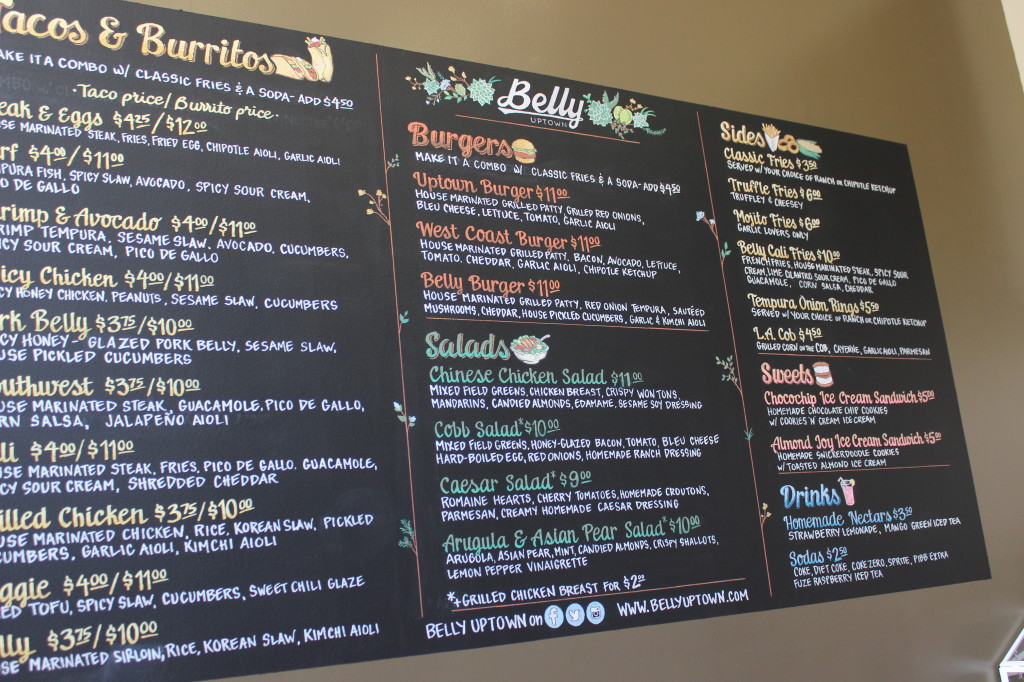 Tacos & Burritos
MAKE IT A COMBO W/ CLASSIC FRIES & A SODA- ADD $4.50
·Taco price/Burrito price·
& Eggs $4.25/$12.00
MARINATED STEAK, FRIES, FRIED EGG, CHIPOTLE AIOLI, GARLIC AIOLI
$4.00/$11.00
FISH, SPICY SLAW, AVOCADO, SPICY SOUR CREAM,
DE GALLO
& Avocado $4.00/$11.00
TEMPURA, SESAME SLAW, AVOCADO, CUCUMBERS,
SOUR CREAM, PICO DE GALLO
Chicken $4.00/$11.00
HONEY CHICKEN, PEANUTS, SESAME SLAW, CUCUMBERS
Belly $3.75/$10.00
HONEY-GLAZED PORK BELLY, SESAME SLAW,
PICKLED CUCUMBERS
$3.75/$10.00
MARINATED STEAK, GUACAMOLE, PICO DE GALLO,
SALSA, JALAPEÑO AIOLI
$4.00/$11.00
MARINATED STEAK, FRIES, PICO DE GALLO, GUACAMOLE,
SOUR CREAM, SHREDDED CHEDDAR
Chicken $3.75/$10.00
MARINATED CHICKEN, RICE, KOREAN SLAW, PICKLED
GARLIC AIOLI, KIMCHI AIOLI
$4.00/$11.00
TOFU, SPICY SLAW, CUCUMBERS, SWEET CHILI GLAZE
$3.75/$10.00
MARINATED SIRLOIN, RICE, KOREAN SLAW, KIMCHI AIOLI
Belly
UPTOWN
Burgers
MAKE IT A COMBO W/ CLASSIC FRIES & A SODA-ADD $4.50
Uptown Burger $11.00
HOUSE MARINATED GRILLED PATTY, GRILLED RED ONIONS,
BLEU CHEESE, LETTUCE, TOMATO, GARLIC AIOLI
West Coast Burger $11.00
HOUSE MARINATED GRILLED PATTY, BACON, AVOCADO, LETTUCE,
TOMATO, CHEDDAR, GARLIC AIOLI, CHIPOTLE KETCHUP
Belly Burger $11.00
HOUSE MARINATED GRILLED PATTY, RED ONION TEMPURA, SAUTÉED
MUSHROOMS, CHEDDAR, HOUSE PICKLED CUCUMBERS, GARLIC & KIMCHI AIOLI
Salads
Chinese Chicken Salad $11.00
MIXED FIELD GREENS, CHICKEN BREAST, CRISPY WONTONS,
MANDARINS, CANDIED ALMONDS, EDAMAME, SESAME SOY DRESSING
Cobb Salad* $10.00
MIXED FIELD GREENS, HONEY-GLAZED BACON, TOMATO, BLEU CHEESE
HARD-BOILED EGG, RED ONIONS, HOMEMADE RANCH DRESSING
Caesar Salad* $9.00
ROMAINE HEARTS, CHERRY TOMATOES, HOMEMADE CROUTONS,
PARMESAN, CREAMY HOMEMADE CAESAR DRESSING
Arugula & Asian Pear Salad* $10.00
ARUGULA, ASIAN PEAR, MINT, CANDIED ALMONDS, CRISPY SHALLOTS,
LEMON PEPPER VINAIGRETTE
*+GRILLED CHICKEN BREAST FOR $2.00
BELLY UPTOWN on WWW.BELLYUPTOWN.COM
Sides
Classic Fries $3.50
SERVED W/ YOUR CHOICE OF RANCH OR CHIPOTLE KETCHUP
Truffle Fries $6.00
TRUFFLEY & CHEESEY
Mojito Fries $6.00
GARLIC LOVERS ONLY
Belly Cali Fries $10.00
FRENCH FRIES, HOUSE MARINATED STEAK, SPICY SOUR
CREAM, LIME CILANTRO SOUR CREAM, PICO DE GALLO
GUACAMOLE, CORN SALSA, CHEDDAR
Tempura Onion Rings $5.50
SERVED W/ YOUR CHOICE OF RANCH OR CHIPOTLE KETCHUP
L.A. Cob $4.50
GRILLED CORN ON THE COB, CAYENNE, GARLIC AIOLI, PARMESAN
Sweets
Chocochip Ice Cream Sandwich $5.00
HOMEMADE CHOCOLATE CHIP COOKIES
W/ COOKIES 'N CREAM ICE CREAM
Almond Joy Ice Cream Sandwich $5.00
HOMEMADE SNICKERDOODLE COOKIES
W/ TOASTED ALMOND ICE CREAM
Drinks
Homemade Nectars $3.50
STRAWBERRY LEMONADE, MANGO GREEN ICED TEA
Sodas $2.50
COKE, DIET COKE, COKE ZERO, SPRITE, PIBB EXTRA
FUZE RASPBERRY ICED TEA